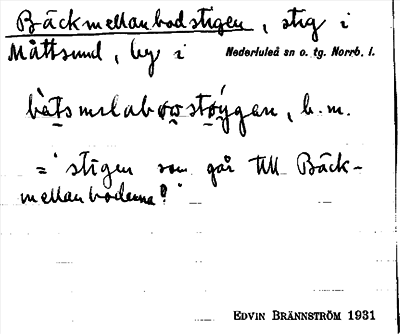 Bäckmellanbodstigen, stig i
Måttsund, by i Nederluleå sn o. tg. Norrb. l.
b.m.
= "stigen som går till Bäck-
mellanboderna?"
EDVIN BRÄNNSTRÖM 1931